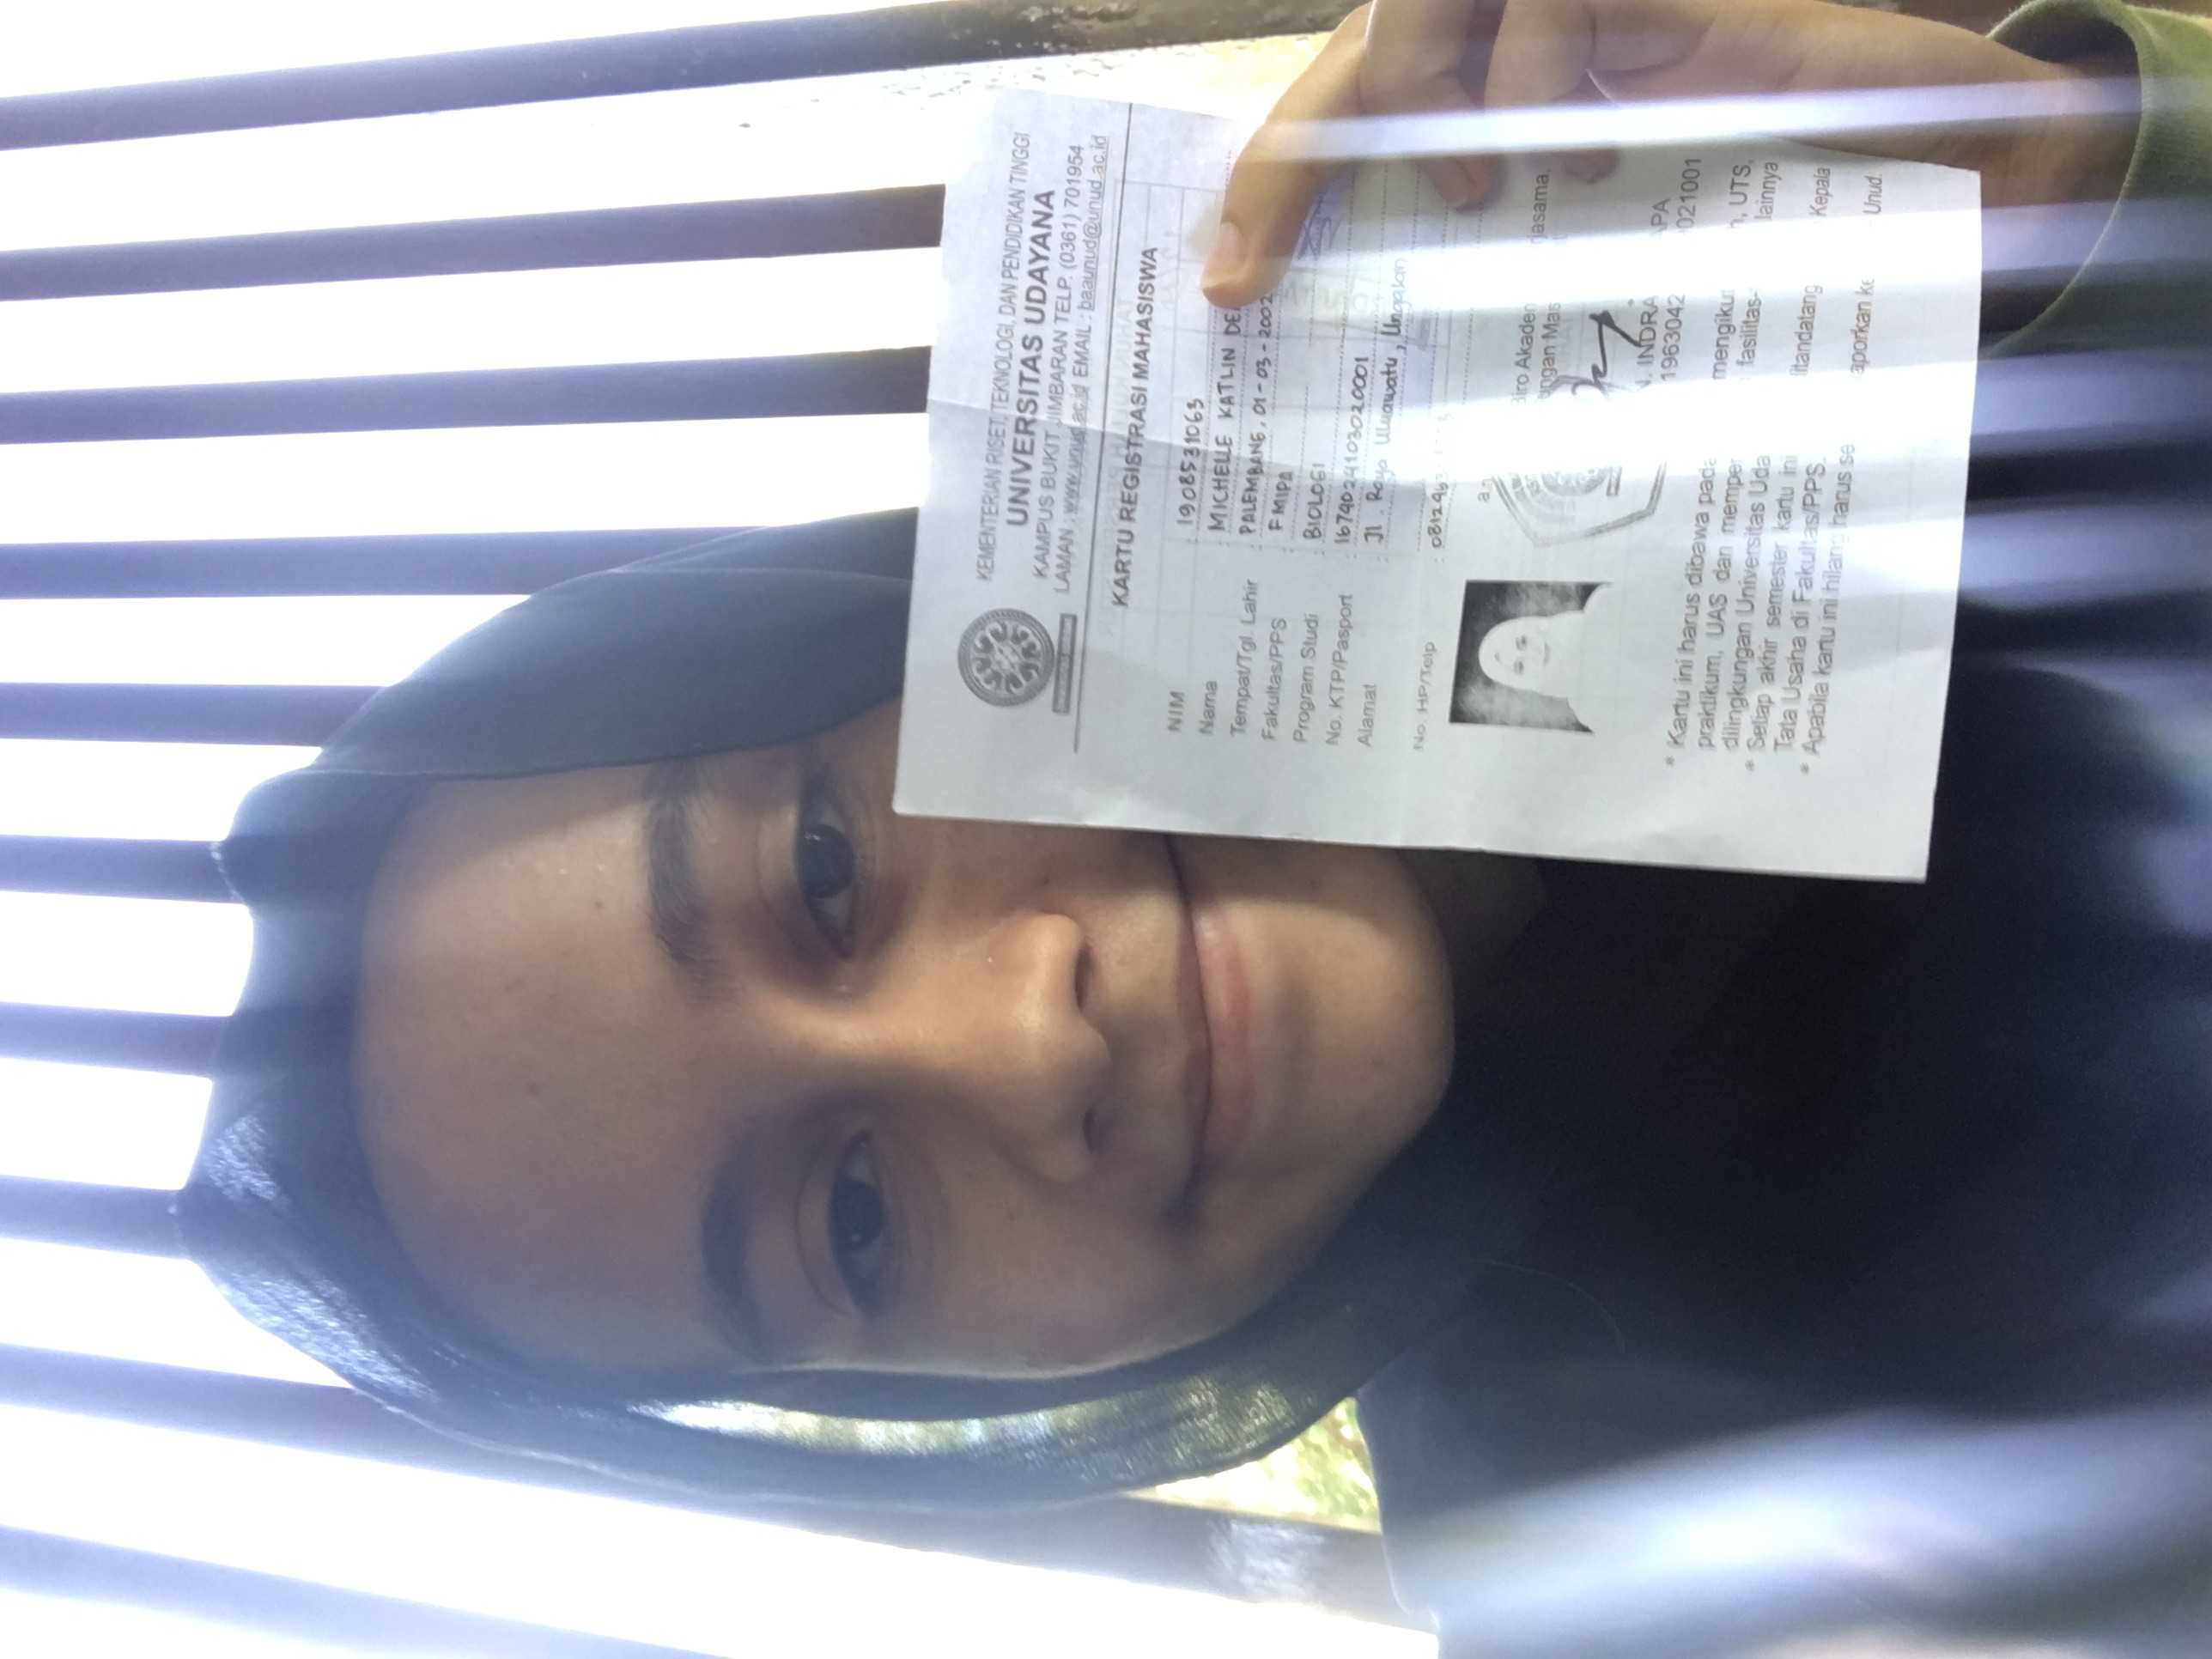 KEMENTERIAN RISET, TEKNOLOGI, DAN PENDIDIKAN TINGGI
UNIVERSITAS UDAYANA
KAMPUS BUKIT JIMBARAN TELP. (0361) 701954
LAMAN : www.unud.ac.id EMAIL : baaunud@unud.ac.id
KARTU REGISTRASI MAHASISWA
NIM : 1908531063
Nama : MICHELLE KATLIN DE
Tempat/Tgl. Lahir : PALEMBANG, 01-03-2002
Fakultas/PPS : FMIPA
Program Studi : BIOLOGI
No. KTP/Pasport : 1674024103020001
Alamat : Jl. Raya Uluwatu, Ungasan
No. HP/Telp : 081246
a.n
Biro Akadem jasama,
ngan Mas
INDRA APA
1963042 021001
* Kartu ini harus dibawa pada mengikut n, UTS,
praktikum, UAS dan memper fasilitas- lainnya
dilingkungan Universitas Uda
* Setiap akhir semester kartu ini ditandatang Kepala
Tata Usaha di Fakultas/PPS.
* Apabila kartu ini hilang harus se aporkan ke Unud.